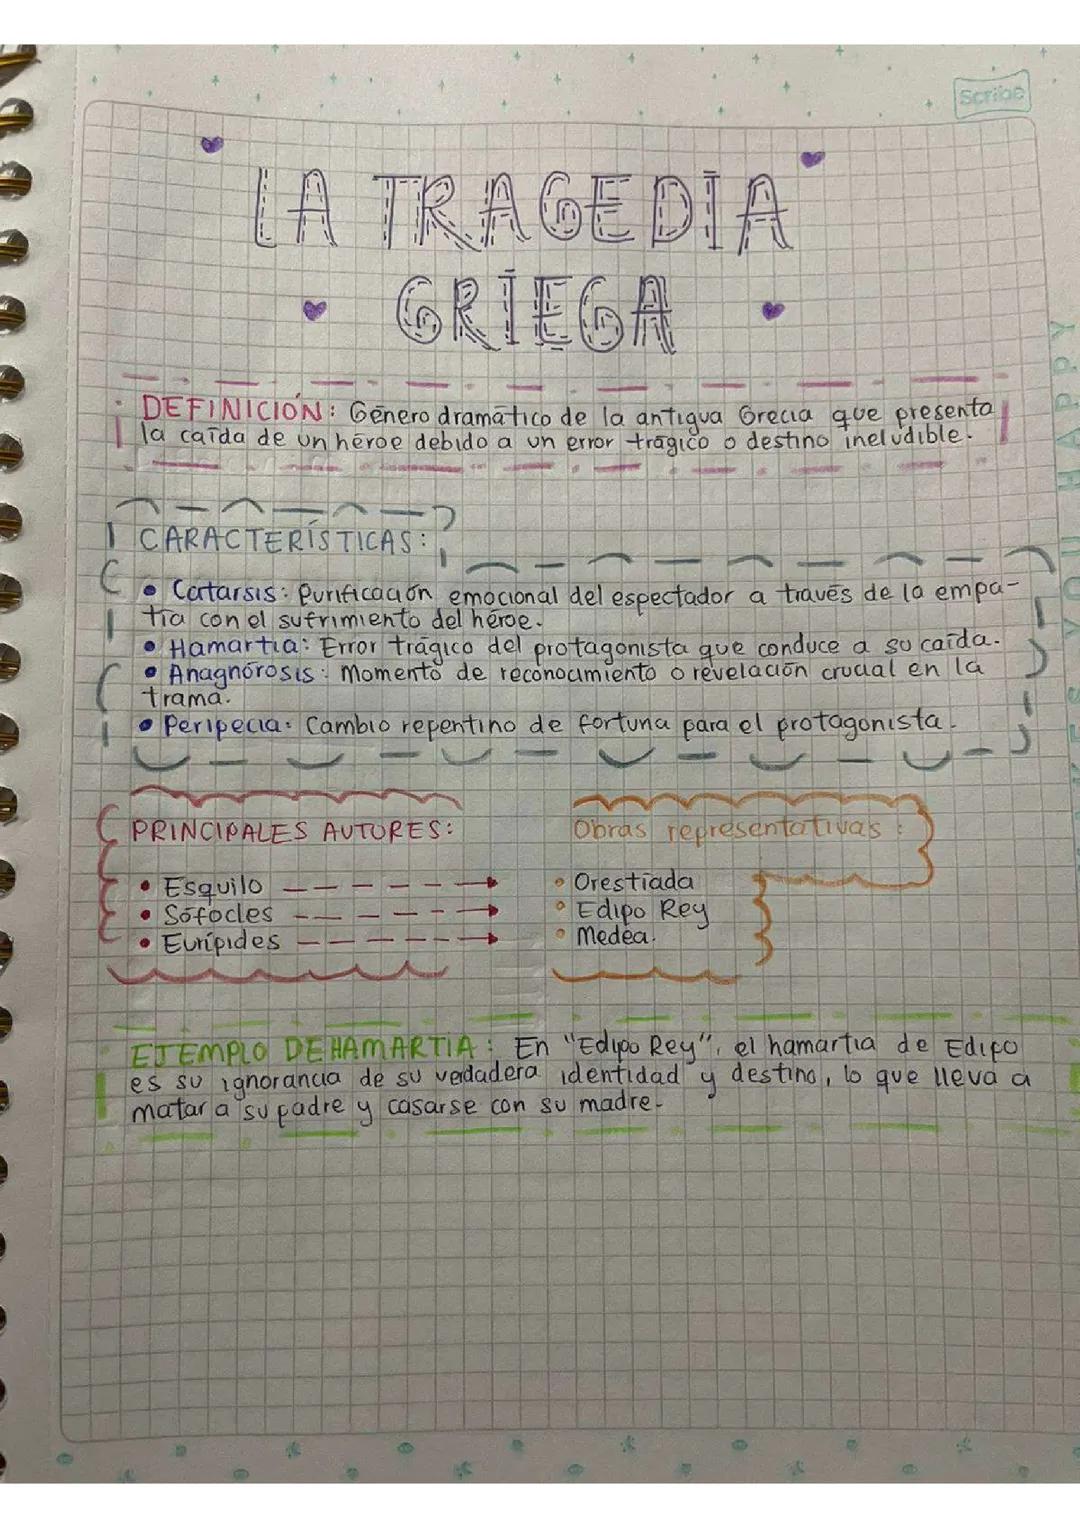 Scribe
LA TRAGEDIA
GRIEGA
DEFINICIÓN: Género dramático de la antigua Grecia que presenta
la caída de un héroe debido a un error trágico o destino ineludible.
CARACTERÍSTICAS:
• Catarsis: Purificación emocional del espectador a través de la empa-
tía con el sufrimiento del héroe.
• Hamartia: Error trágico del protagonista que conduce a su caída.
• Anagnórosis: Momento de reconocimiento o revelación crucial en la
trama.
• Peripecia: Cambio repentino de fortuna para el protagonista.
PRINCIPALES AUTORES:
• Esquilo
• Sófocles
• Eurípides
Obras representativas:
• Orestiada
• Edipo Rey
• Medea.
EJEMPLO DE HAMARTIA: En "Edipo Rey", el hamartia de Edipo
es su ignorancia de su verdadera identidad y destino, lo que lleva a
matar a su padre y casarse con su madre.